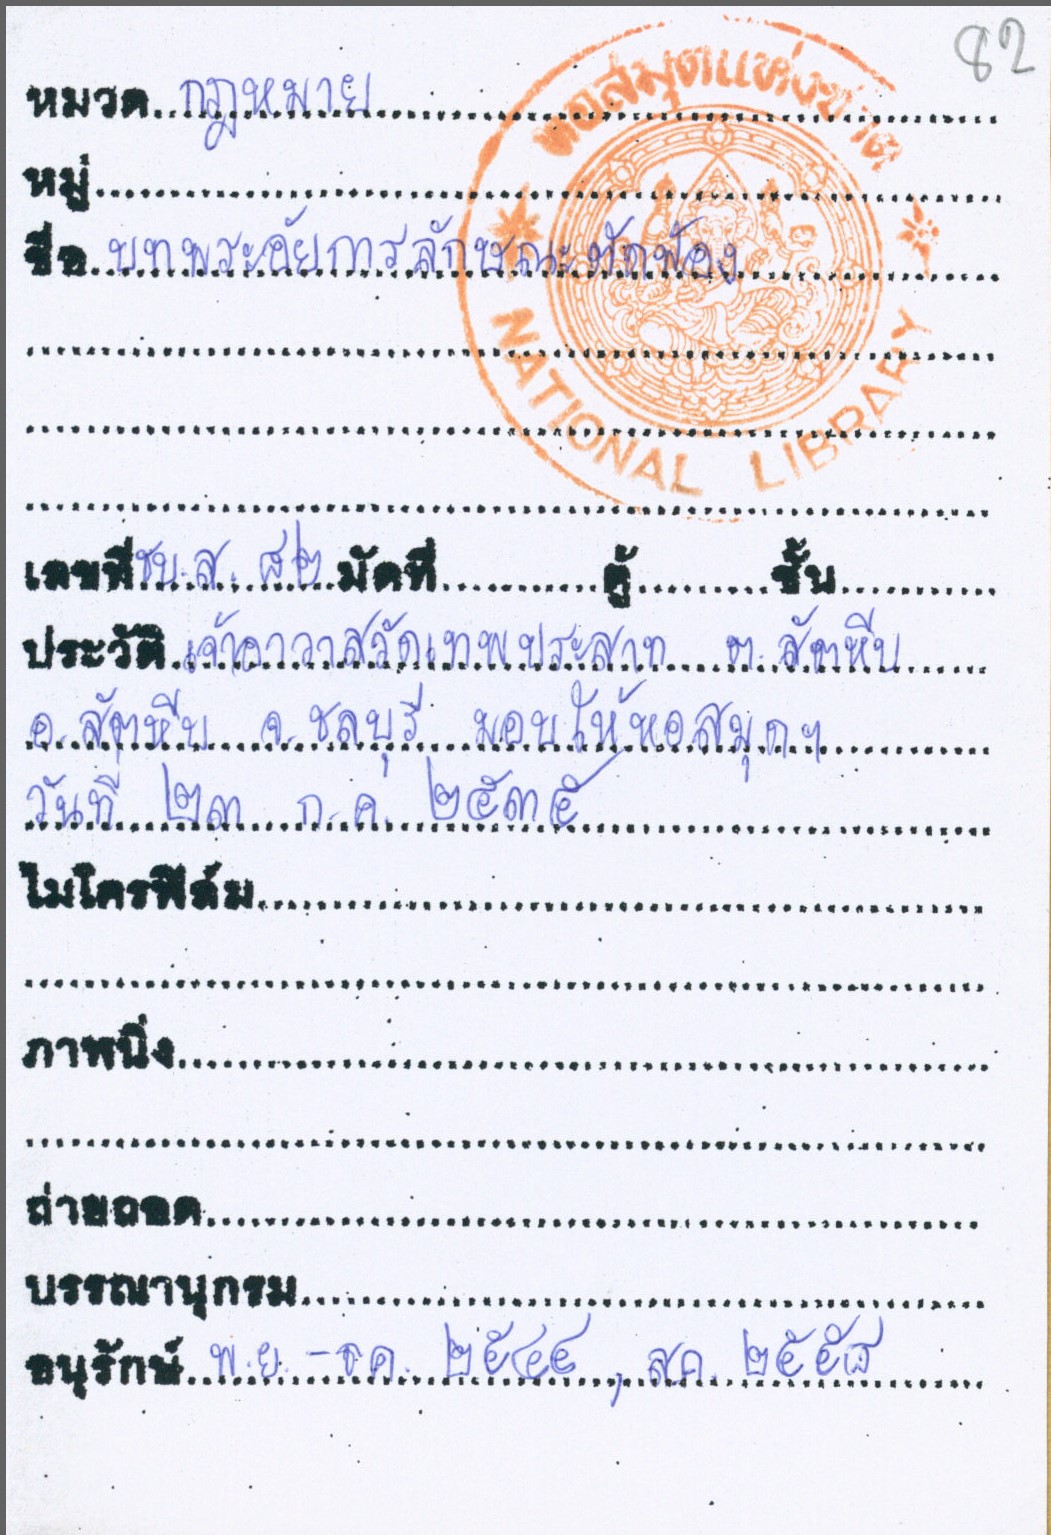 82
หอสมุดแห่งชาติ
NATIONAL LIBRARY
หมวด กฎหมาย
หมู่
ชื่อ บทพระอัยการลักษณะตัดฟ้อง
เลขที่ ชบ.ส. ๘๒ มัดที่ ตู้ ชั้น
ประวัติ เจ้าอาวาสวัดเทพประสาท ต.สัตหีบ
อ.สัตหีบ จ.ชลบุรี มอบให้หอสมุดฯ
วันที่ ๒๓ ก.ค. ๒๕๓๕
ไมโครฟิล์ม
ภาพนิ่ง
ถ่ายถอด
บรรณานุกรม
อนุรักษ์ พ.ย. - ธ.ค. ๒๕๔๔ , ส.ค. ๒๕๕๘